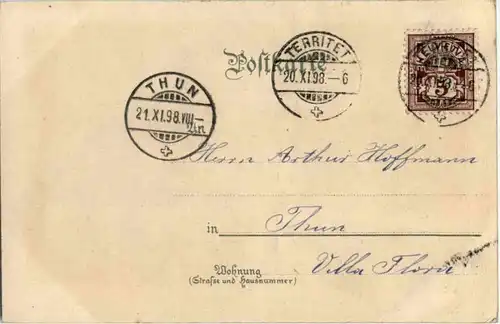 Postkarte
TERRITET
20. XI. 98. – 6
THUN
21. XI. 98. VIII –
5
Herrn Arthur Hoffmann
in Thun
Wohnung Villa Flora
(Strasse und Hausnummer)